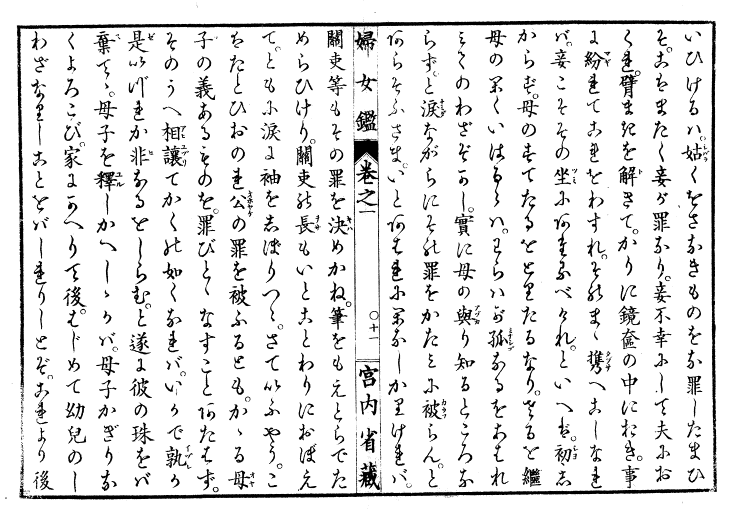 いひけるハ。姑くをさなきものをな罪したまひ
そ。こはまたく妾が罪なり。妾不幸にして夫にお
くれ。臂まきを解きて。かりに鏡奩の中におき。事
に紛れてこれをわすれ。そのまゝ携へこしなれ
バ。妾こそその坐にあたるべけれ。といへば。初も
からず。母のすてたるをとりたるなり。さるを繼
母のかくいはるゝハ。わらハが孤なるをあはれ
みてのわざぞかし。實に母の與り知るところな
らず。と涙ながらにその罪をかたみに被らん。と
あらそふさま。いとあはれにみえしかりければ。
婦女鑑 卷之一 〇十一 宮内省藏
關吏等もその罪を決めかね。筆をもえとらでた
めらひけり。關吏の長もいとことわりにおぼえ
て。ともに涙に袖をしぼりつゝ。さていふやう。こ
をたとひおのれ公の罪を被ふるとも。かゝる母
子の義あるものを。罪びとゝなすことあたはず。
そのうへ相讓てかくの如くなれバ。いかで孰か
是いづれか非なるをしらむ。と遂に彼の珠をバ
棄てゝ。母子を釋しかへしゝかバ。母子かぎりな
くよろこび。家にかへりて後。はじめて幼兒のし
わざなりしことをバしれりしとぞ。これより後